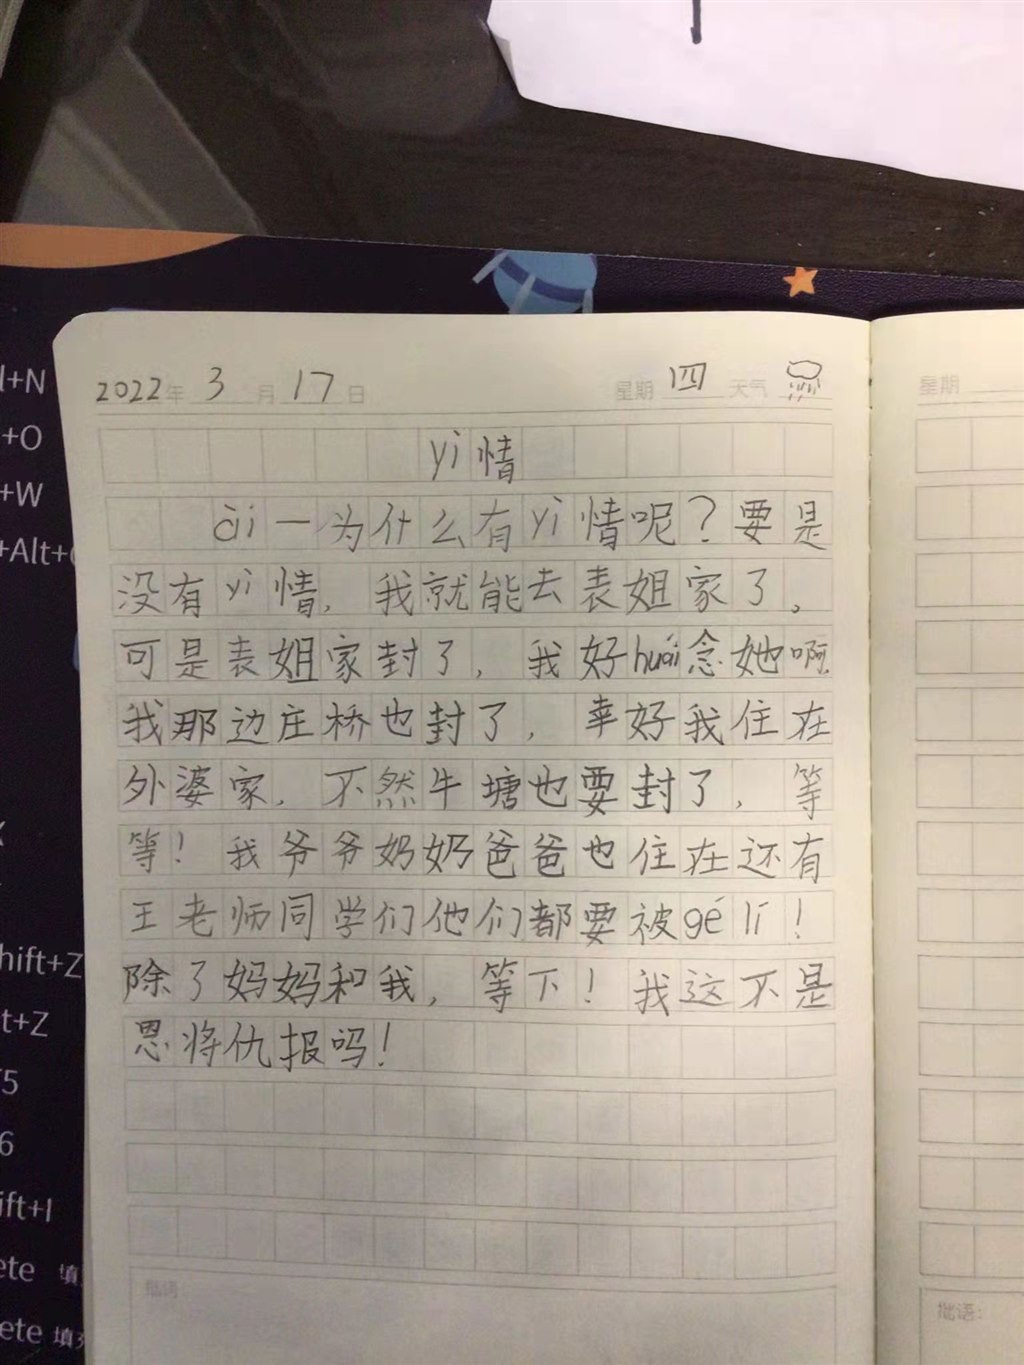 2022年 3月 17日 星期 四 天气
星期
yì情
ài一为什么有yì情呢？要是
没有yì情，我就能去表姐家了。
可是表姐家封了，我好huái念她啊
我那边庄桥也封了，幸好我住在
外婆家，不然牛塘也要封了，等
等！我爷爷奶奶爸爸也住在还有
王老师同学们他们都要被gé lí！
除了妈妈和我，等下！我这不是
恩将仇报吗！
批语：
批语：
+N
+O
+W
+Alt+
hift+Z
t+Z
5
6
ift+I
ete 填
ete 填充